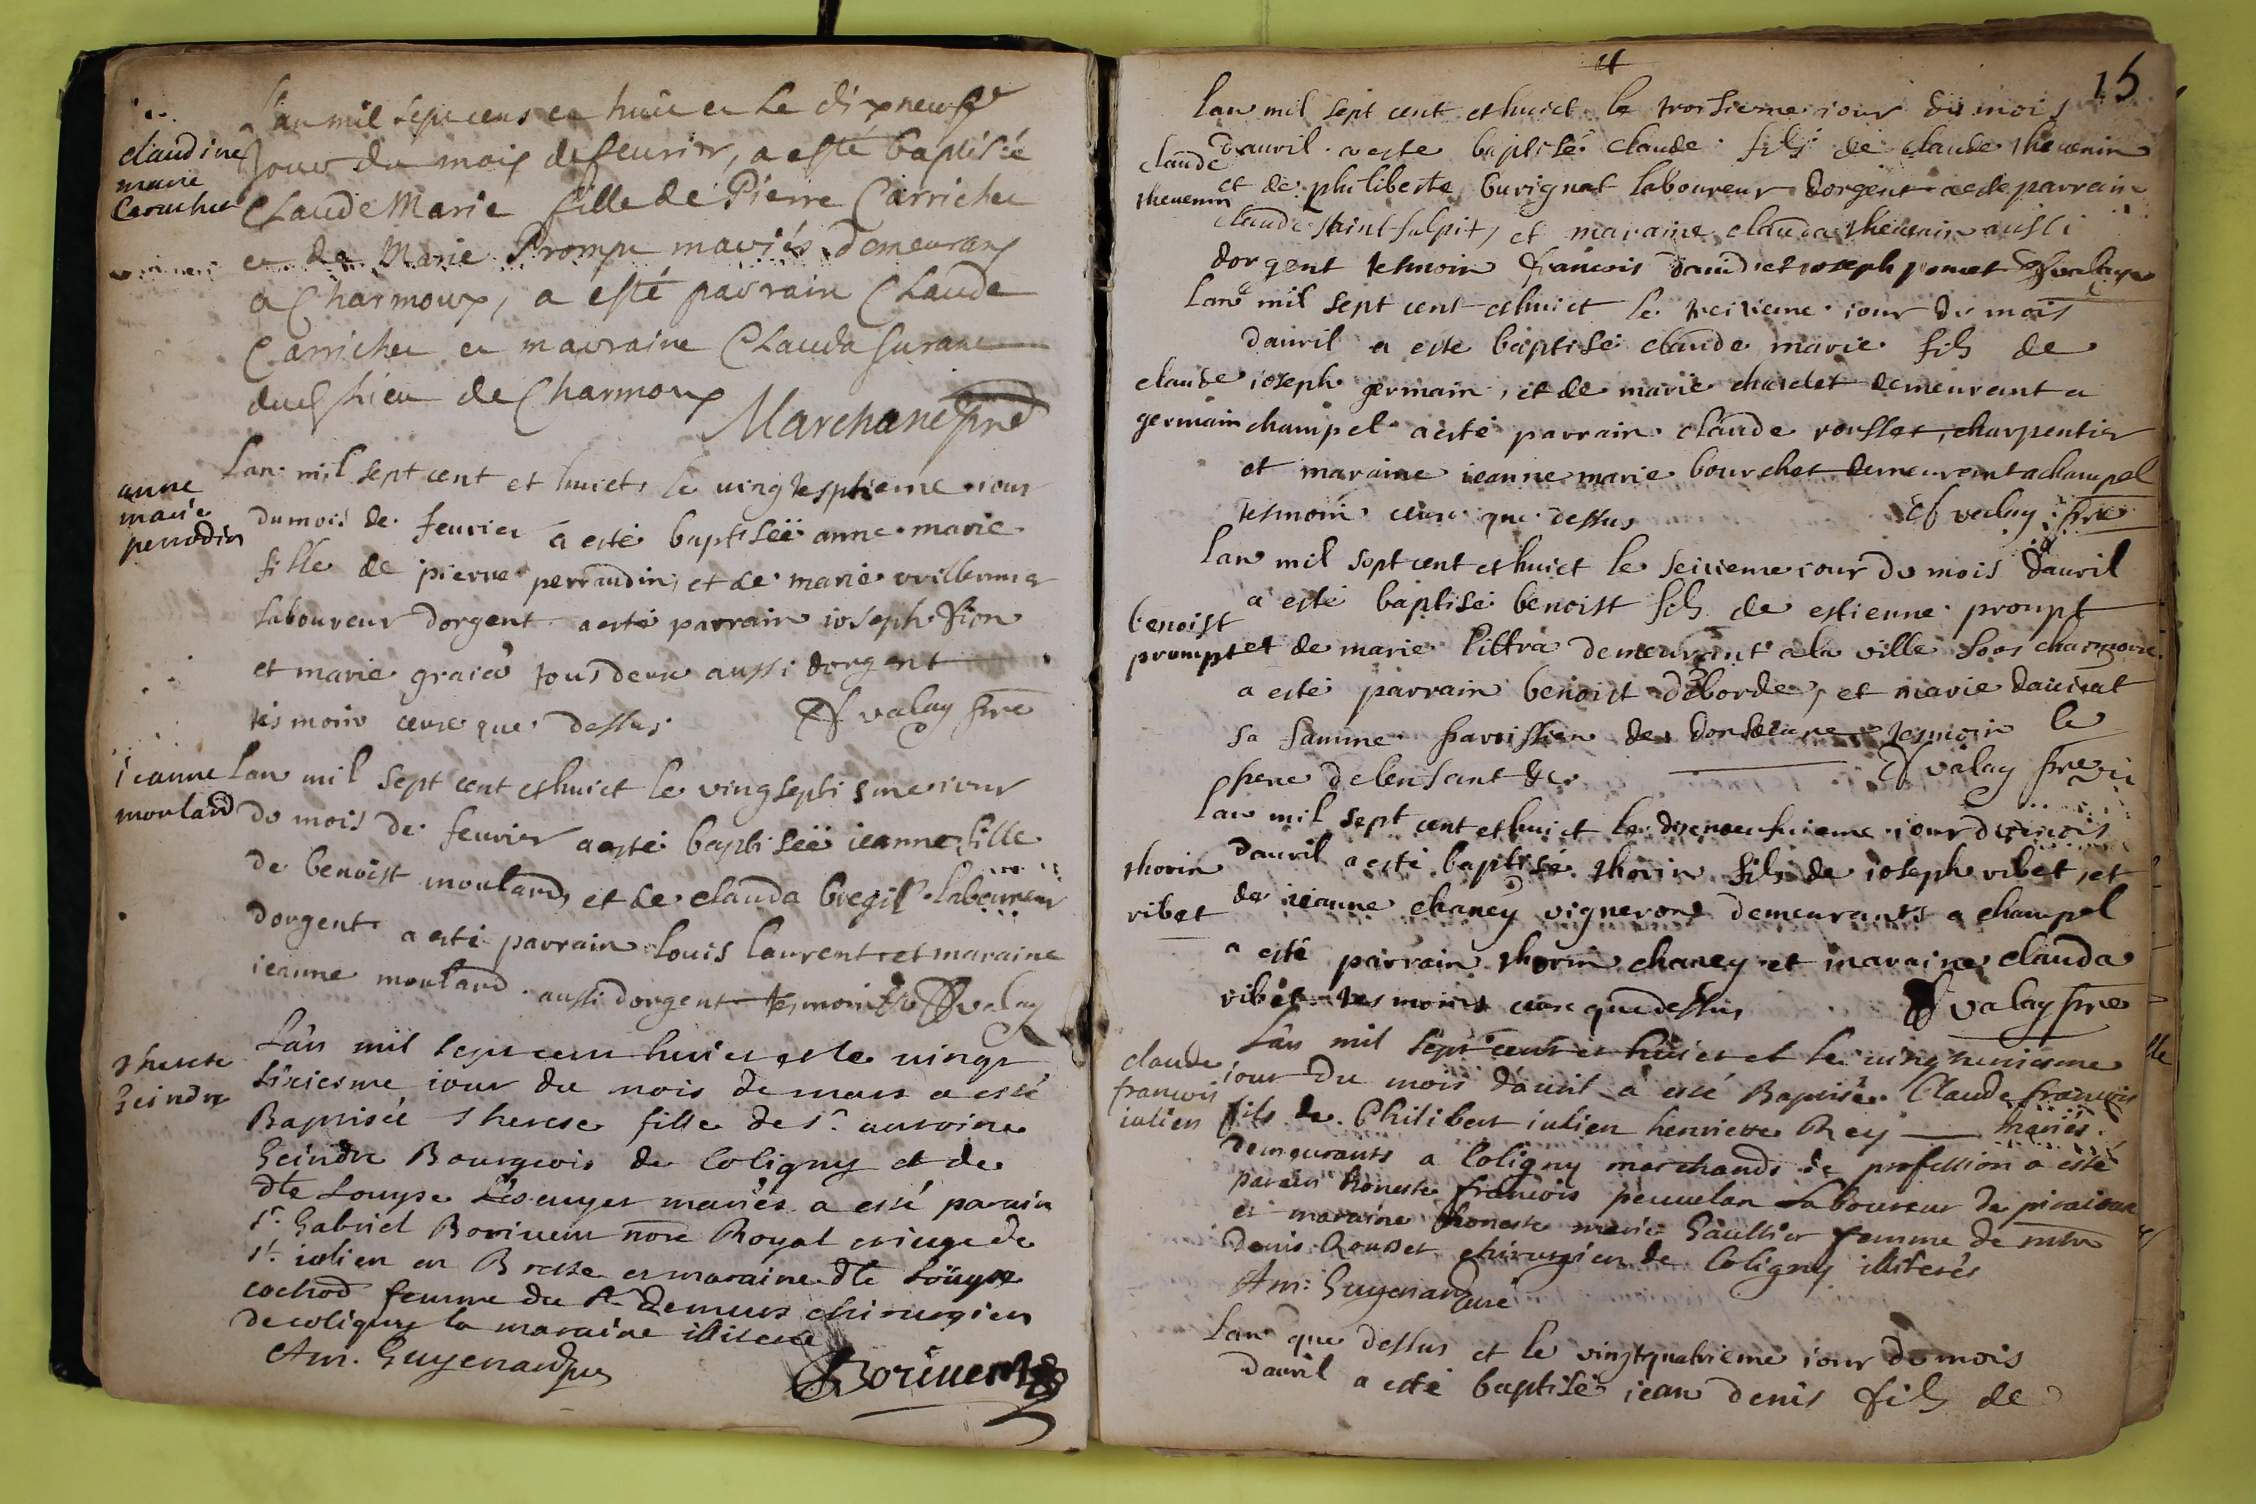 L'an mil sept cens et huit et le dixneufe
claudine
marie
Jour du mois de feurier, a esté baptisée
Claude Marie fille de Pierre Carrichet
et de Marie Prompt mariés demeurans
a Charmoux, a esté parrain Claude
Carrichet et marraine Clauda
dud lieu de Charmoux
Marchand pre
anne
marie
perrodin
Lan mil sept cent et huict le vingtesptieme iour
du mois de feurier a esté baptiseë anne marie
fille de pierre perraudin et de marie
laboureur dorgent a esté parrain ioseph fion
et marie tous deux aussi dorgent
tesmoin ceux que dessus Cf valay pre
ieanne
moulard
Lan mil sept cent et huict le vingseptiesme iour
du mois de feurier a esté baptiseë ieanne fille
de benoist moulard et de clauda bregil laboureur
dorgent a esté parrain louis laurent et maraine
ieanne moulard aussi dorgent tesmoin Cf valay
therese
Geindre
Lan mil sept cent huict et le vingt
sixiesme iour du mois de mars a esté
Baptisée Therese fille de Sr. antoine
Geindre Bourgeois de Coligny et de
dte Louyse mariés a esté parain
Sr. Gabriel Borivent nore Royal et iuge de
St. iulien en Bresse et maraine dte Loüyse
cochod femme du Sr demeurs chirurgien
de coligny la maraine illiterée
Am. Guyenard
Borivent
15
Lan mil sept cent et huict le troisieme iour du mois
claude
thevenin
dauril a este baptisé claude fils de claude thevenin
et de philiberte buvignat laboureur dorgent a este parrain
claude saint sulpit, et maraine clauda thevenin aussi
dorgent tesmoin francois dauid et ioseph ponet Cf valay
Lan mil sept cent et huict le treizieme iour du mois
dauril a este baptisé claude marie fils de
claude
germain
ioseph germain, et de marie chardet demeurant a
champel a esté parrain claude rousset, charpentier
et maraine ieanne marie bourchet demeurant a champel
tesmoin ceux que dessus Cf valay pre
Lan mil sept cent et huict le seizieme iour du mois dauril
benoist
prompt
a esté baptisé benoist fils de estienne prompt
et de marie pittra demeurant a la ville sous charmoux
a esté parrain benoict deborde, et marie dauirat
sa famme parroissien de tesmoin le
pere de lenfant &c. Cf valay pre
Lan mil sept cent et huict le dixneufuieme iour du mois
thorin
ribet
dauril a esté baptisé thorin fils de ioseph ribet et
de ieanne chaney vignerons demeurants a champel
a esté parrain thorin chaney et maraine clauda
ribet tesmoins ceux que dessus Cf valay pre
claude
francois
iulien
Lan mil sept cent et huict et le vingtiniesme
iour du mois dauril a esté Baptisé Claude françois
fils de Philibert iulien henriette Rey mariés
demeurants a Coligny marchands de profession a esté
parain honeste françois peuuelan Laboureur de
et maraine honeste marie Gaultier femme de mtre
denis Rousset chirurgien de Coligny illiterés
Am: Guyenard curé
Lan que dessus et le vingtquatrieme iour du mois
dauril a esté baptisé iean denis fils de